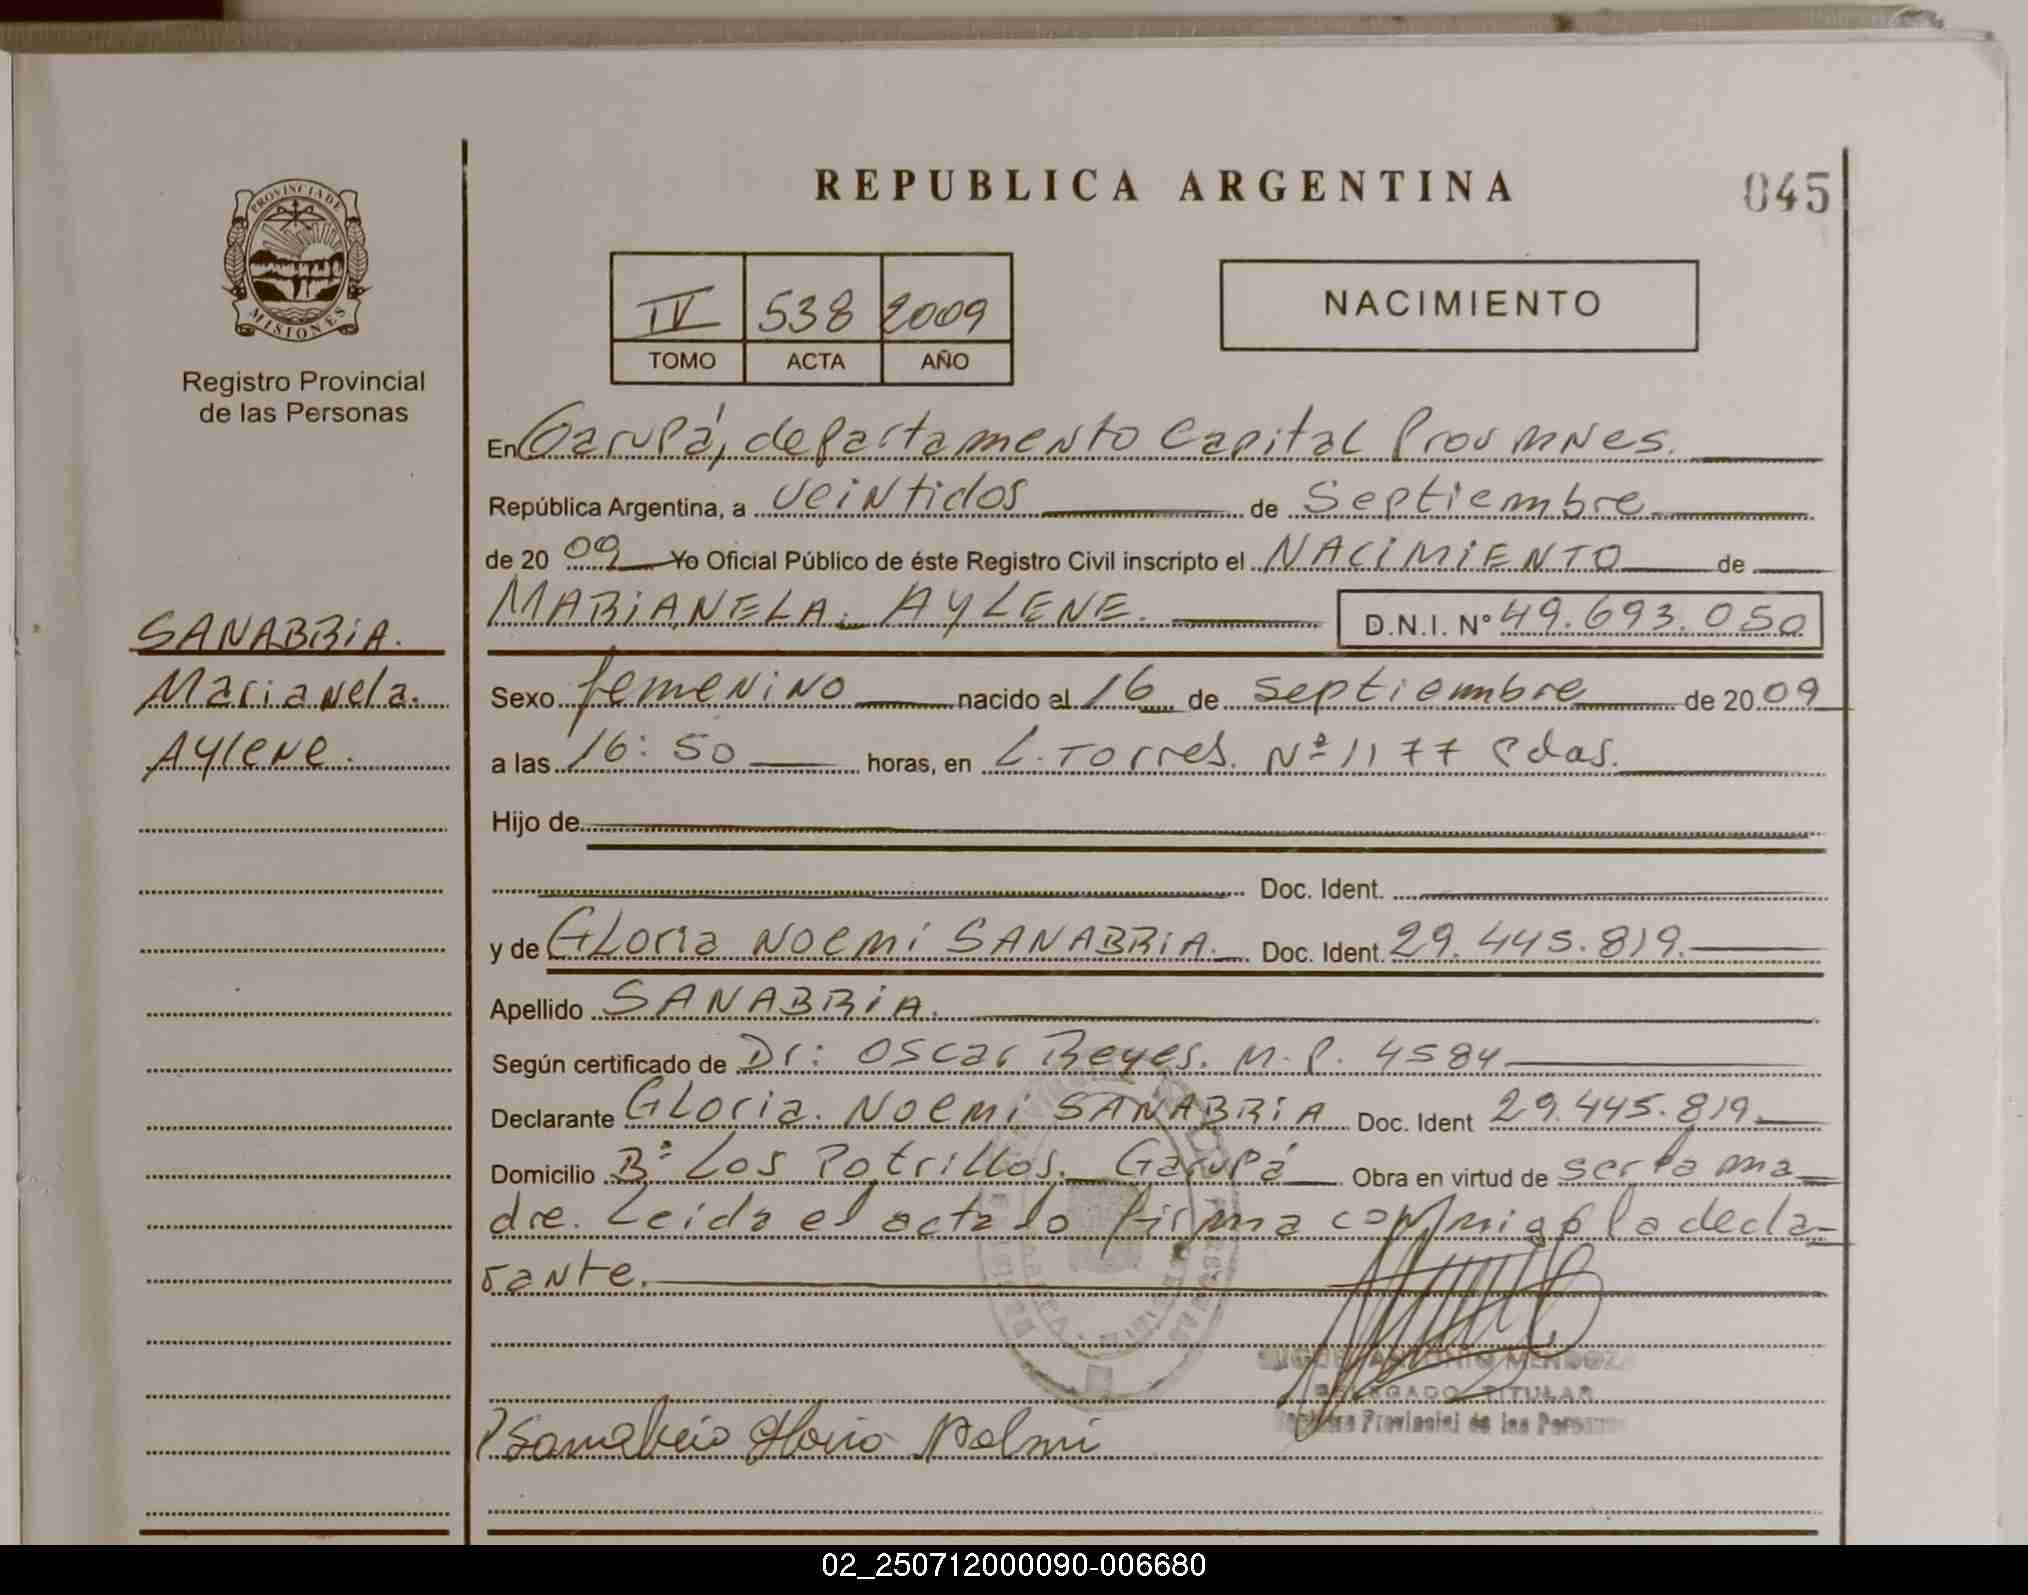 REPUBLICA ARGENTINA
045
PROVINCIA DE
MISIONES
Registro Provincial
de las Personas
IV 538 2009
TOMO ACTA AÑO
NACIMIENTO
En Garupá, departamento Capital Prov mnes.
República Argentina, a veintidos de Septiembre
de 20 09 Yo Oficial Público de éste Registro Civil inscripto el NACIMIENTO de
MARIANELA. AYLENE. D.N.I. N° 49.693.050
SANABRIA.
Marianela.
Aylene.
Sexo femenino nacido el 16 de septiembre de 20 09
a las 16:50 horas, en L. Torres. Nº 1177 Pdas.
Hijo de
Doc. Ident.
y de GLoria Noemi SANABRIA. Doc. Ident. 29.445.819.
Apellido SANABRIA.
Según certificado de Dr: Oscar Reyes. M.P. 4584
Declarante GLoria. Noemi SANABRIA Doc. Ident 29.445.819.
Domicilio Bº Los Potrillos. Garupá Obra en virtud de ser la ma
dre. Leida el acta lo firma conmigo la decla-
rante.
MIGUEL ANTONIO MENDOZA
DELEGADO TITULAR
Registro Provincial de las Personas
Sanabria Gloria Noemi
02_250712000090-006680